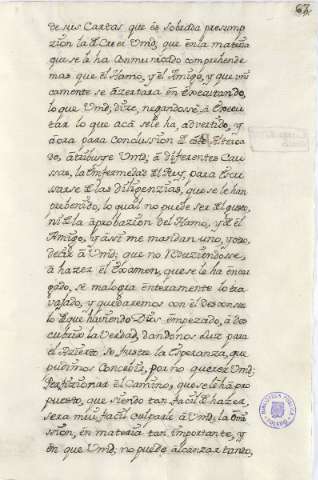 67
de sus Cartas que es sobrada presump
zion la de Creer Vmd; que en la materia
que se le ha Communicado comprehende
mas que el Hamo, y el Amigo, y que uni
camente se azertara en Executando,
lo que Vmd; dize, negandosse â Execu
tar lo que acà se le ha, advertido, y
aora para Conclussion de
do, atribuye Vmd; â diferentes Cau
ssas, la Enfermedad del Rey, para Escu
sarse de las diligenzias, que se le han
prebenido, lo qual no puede ser del gusto,
ni de la aprobazion del Hamo, y del
Amigo, y assi me mandan uno, y otro,
dezir â Vmd; que no Reduziendosse,
â hazer el Examen, que se le ha encar
gado, se malogra enteramente lo tra
vajado, y quedaremos con el Desconsue
lo de que haviendo Dios empezado, â des
cubrir la Verdad, dandonos Luz para
el Azierto se frustre la Esperanza, que
pudimos Concebir, por no querer Vmd;
Perfizionar el Camino, que se le ha pro
puesto, que siendo tan facil de hazer,
sera mui facil culparle â Vmd; la Omi
ssion, en materia tan importante, y
en que Vmd; no puede alcanzar tanto,
BIBLIOTECA PUBLICA
TOLEDO